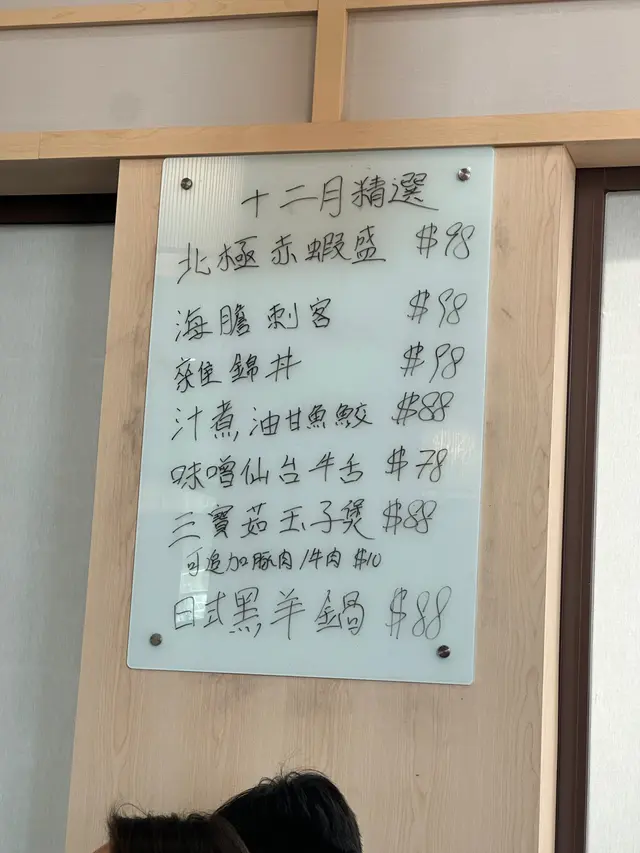 十二月精選
北極赤蝦盛 $98
海膽刺客 $98
錦丼 $98
汁煮油甘魚鮫 $88
味噌仙台牛舌 $78
三寶菇玉子煲 $88
可追加豚肉/牛肉 $10
日式黑羊鍋 $88